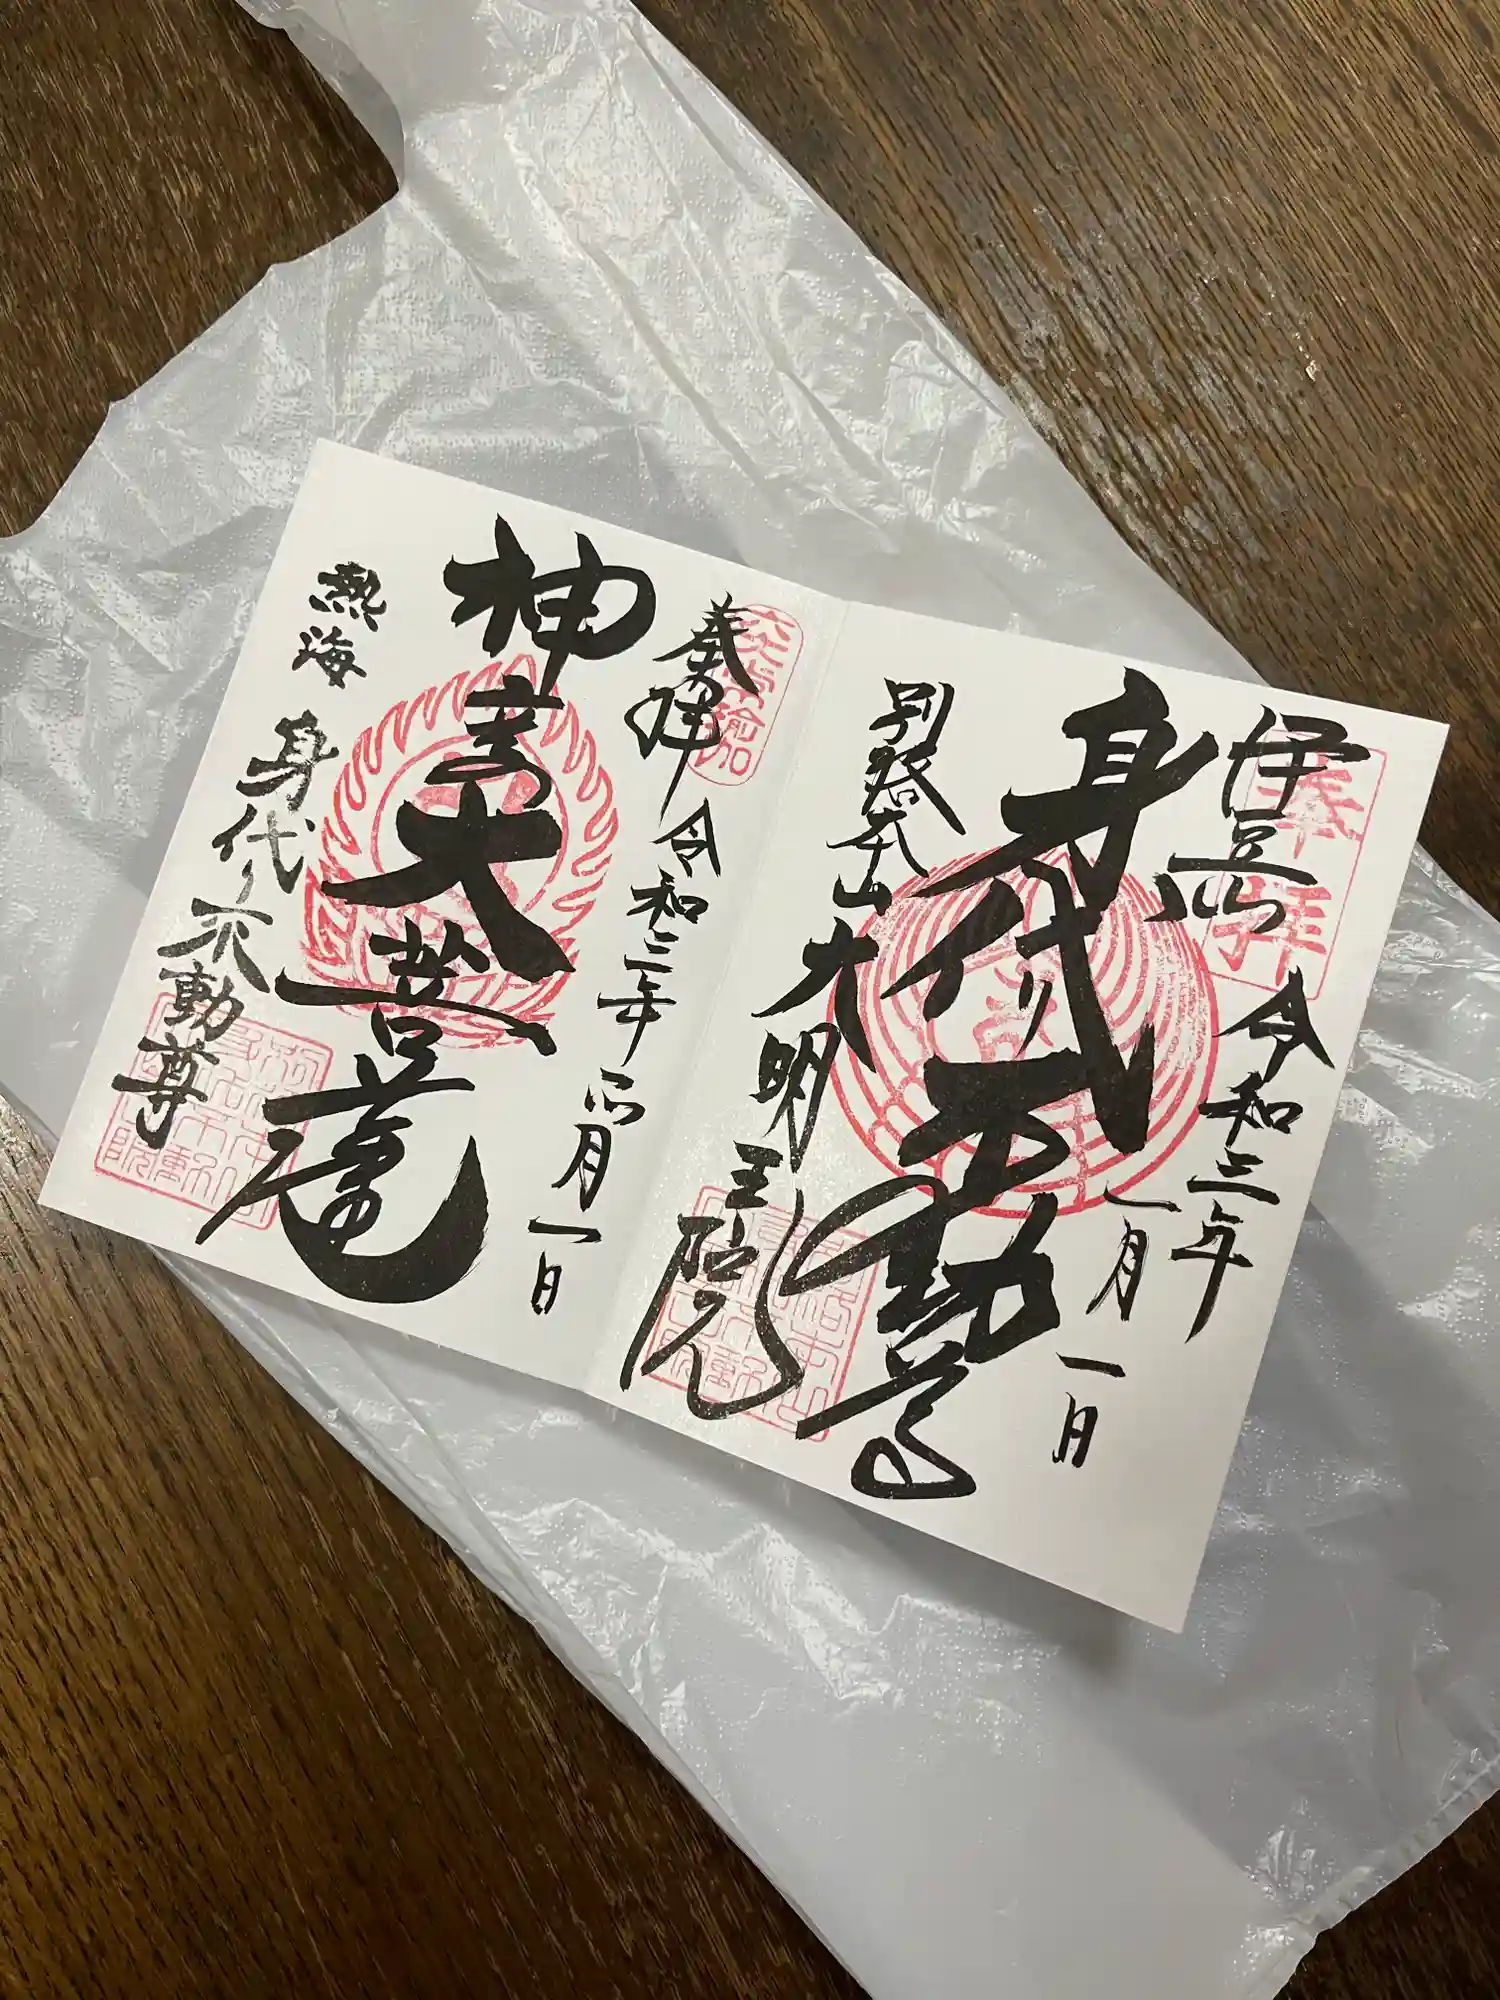 伊豆山
令和三年
一月一日
身代り不動尊
別格本山大明王院
奉拝
奉拝
令和三年
一月一日
神変大菩薩
熱海
身代り不動尊